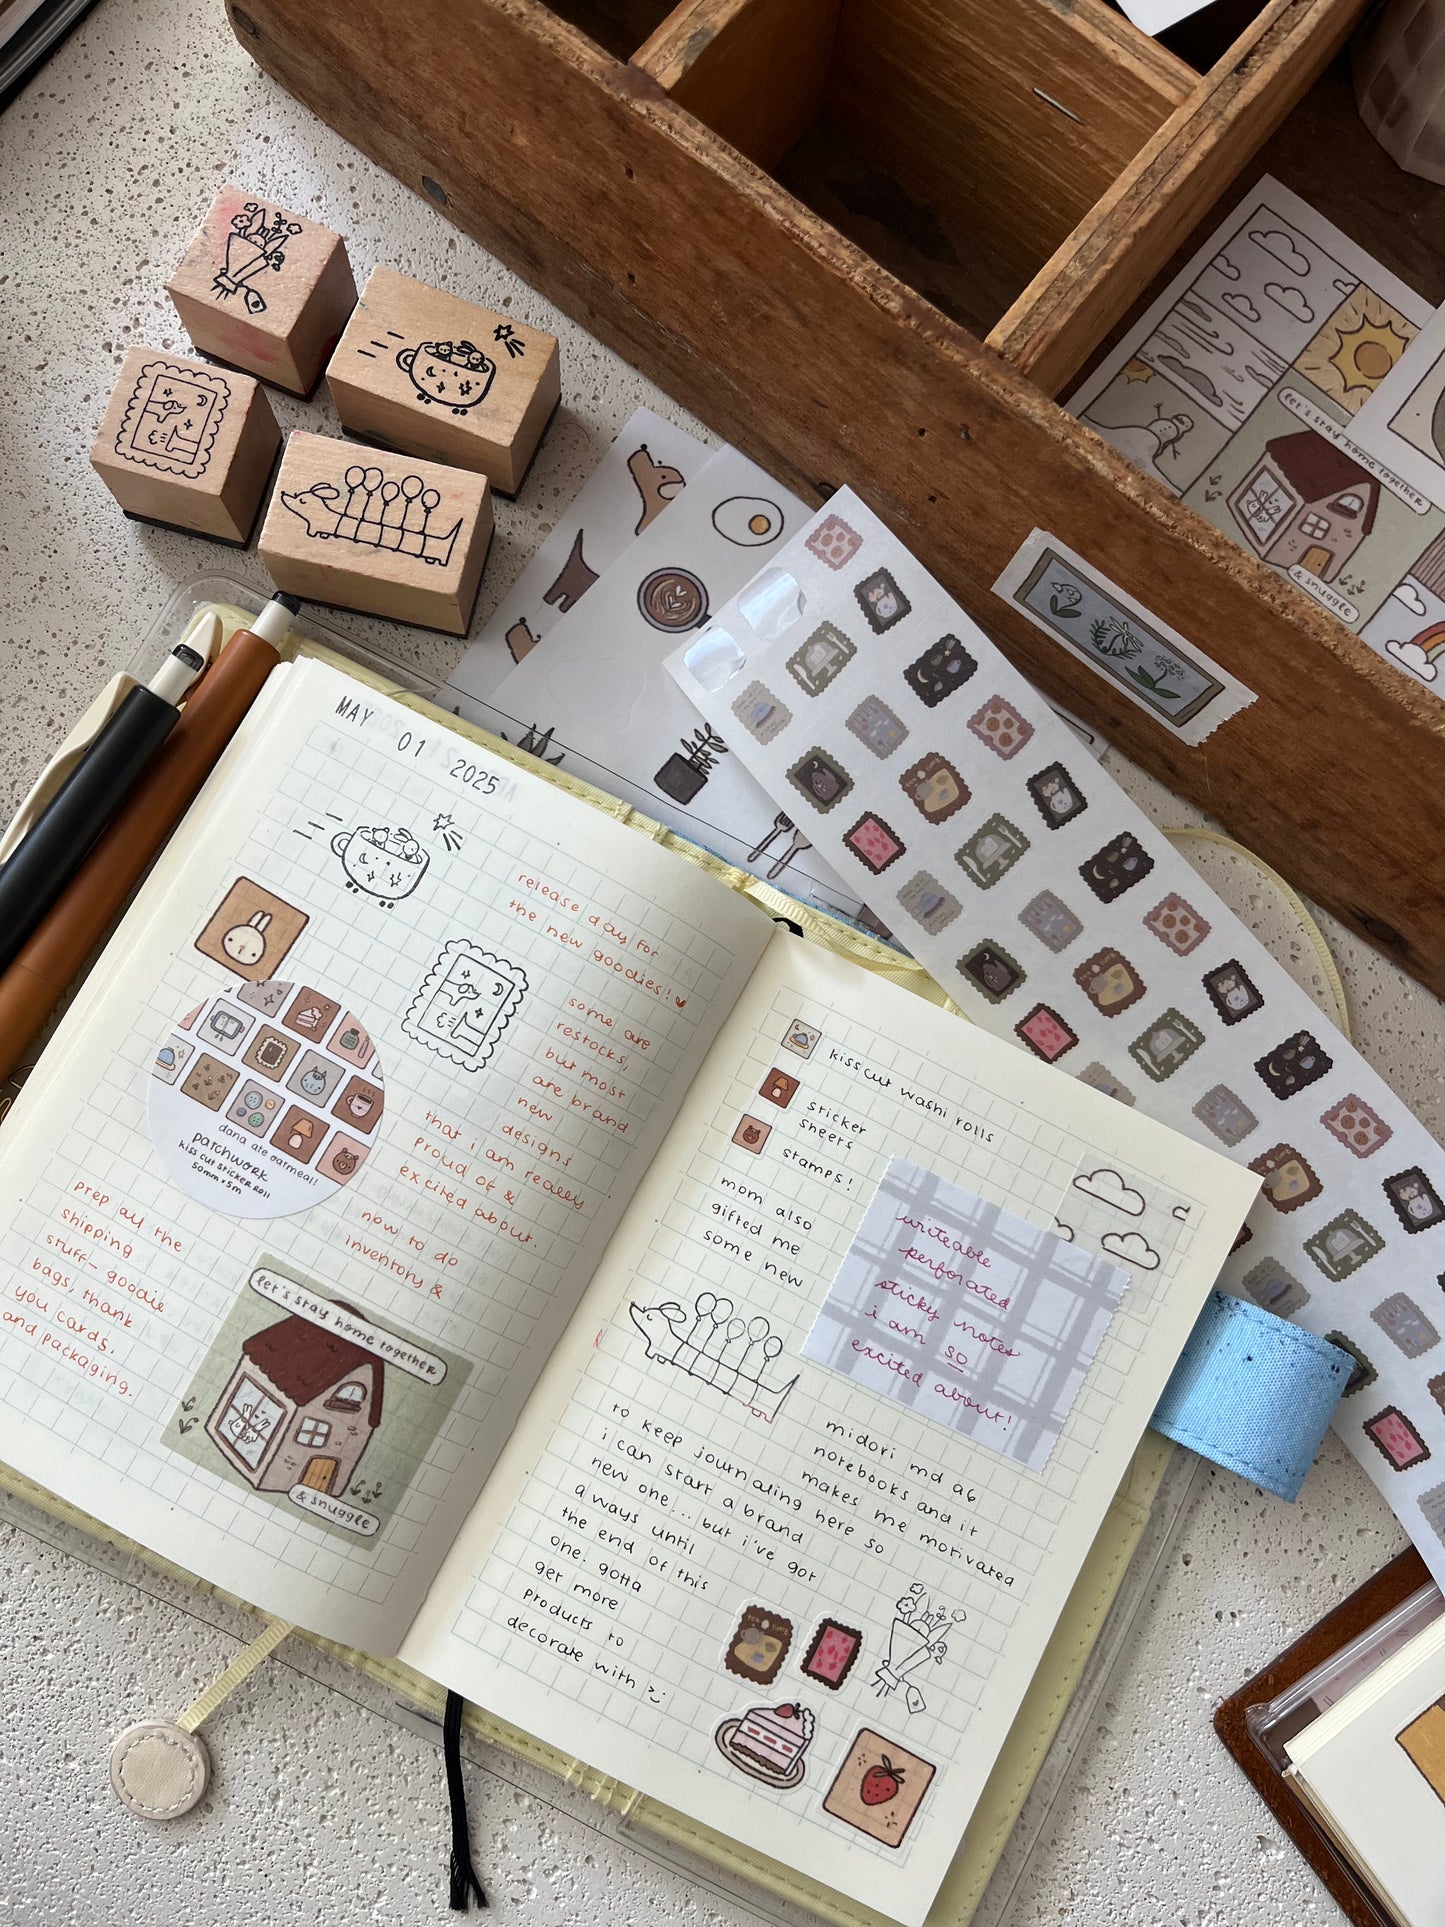 MAY 01 2025
release day for
the new goodies!
some are
restocks,
but most
are brand
new
designs
that i am really
proud of &
excited about.
now to do
inventory &
prep all the
shipping
stuff- goodie
bags, thank
you cards,
and packaging.
dana ate oatmeal!
patchwork
kiss cut sticker roll
50mm x 5m
let's stay home together
& snuggle
kisscut washi rolls
sticker
sheets
stamps!
mom also
gifted me
some new
midori md a6
notebooks and it
makes me motivated
to keep journaling here so
i can start a brand
new one... but i've got
a ways until
the end of this
one. gotta
get more
products to
decorate with
writeable
perforated
sticky notes
i am so
excited about!
tea time
let's stay home together
& snuggle